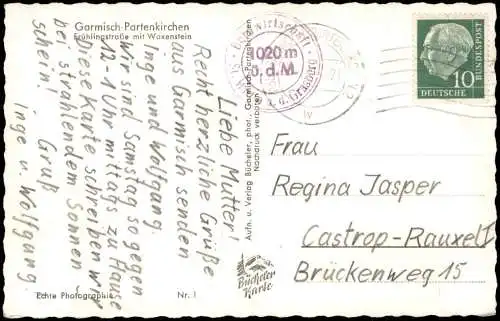 Garmisch-Partenkirchen
Frühlingstraße mit Waxenstein
Liebe Mutter!
Recht herzliche Grüße
aus Garmisch senden
Inge und Wolfgang.
Wir sind Samstag so gegen
12-1 Uhr mittags zu Hause
Diese Karte schreiben wir
bei strahlendem Sonnen
schein! Gruß
Inge u. Wolfgang.
Echte Photographie
Nr. 1
Aufn. u. Verlag Bücheler, phot., Garmisch-Partenkirchen
Nachdruck verboten
Bücheler
Karte
1020 m
ü. d. M.
10
DEUTSCHE
BUNDESPOST
Frau
Regina Jasper
Castrop-Rauxel I
Brückenweg 15